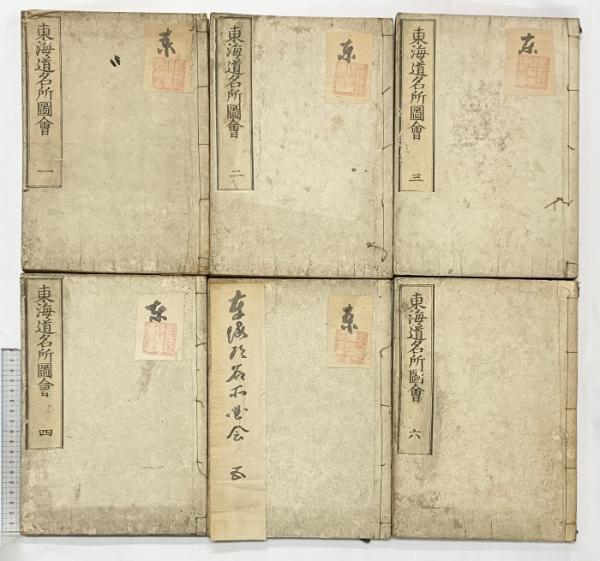 東海道名所圖會 一
东
東海道名所圖會 二
东
東海道名所圖會 三
东
東海道名所圖會 四
东
东海道名所圖会 五
东
東海道名所圖會 六